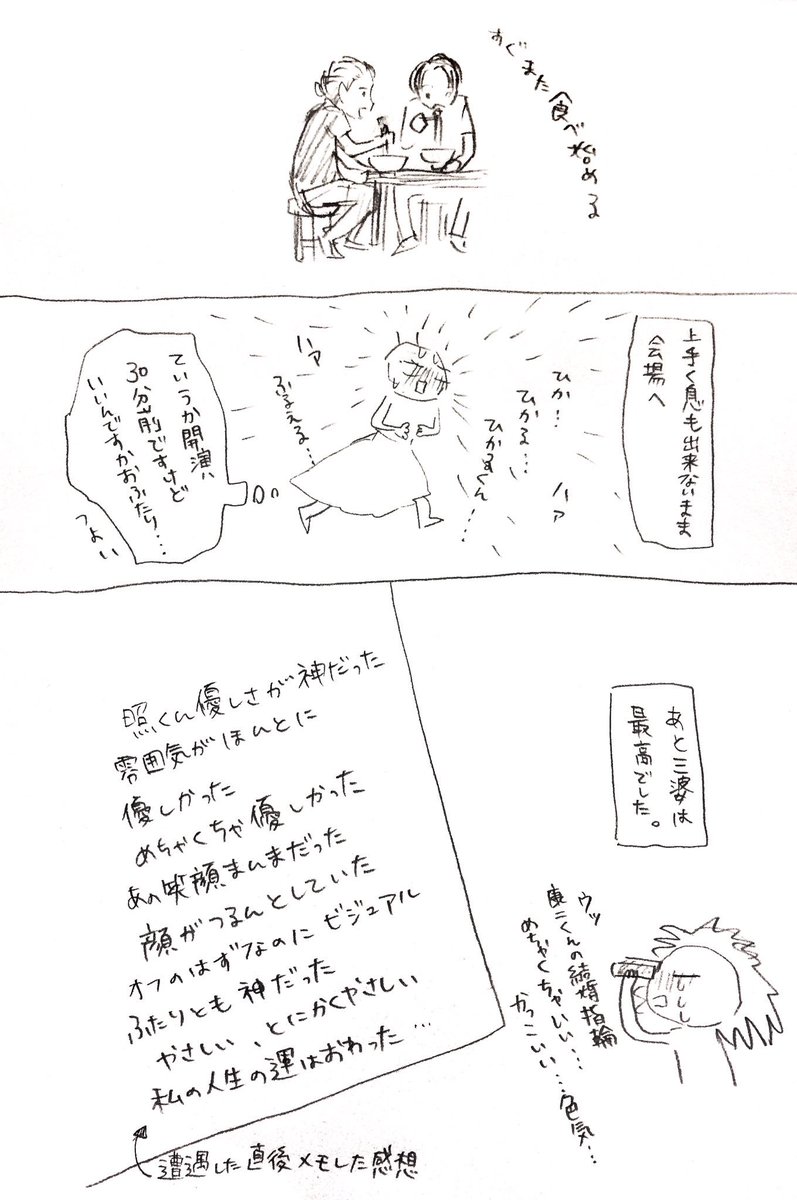 すぐまた食べ始める
上手く息も出来ないまま
会場へ
ひか…
ひかる…
ひかるくん…
ハァ
ハァ
ふるえる…
ていうか開演
30分前ですけど
いいんですかおふたり…
つよい
あと三婆は
最高でした。
ウッ
康二くんの結婚指輪
めちゃくちゃいい…
かっこいい…色気…
照くん優しさが神だった
雰囲気がほんとに
優しかった
めちゃくちゃ優しかった
あの笑顔まんまだった
顔がつるんとしていた
オフのはずなのにビジュアル
ふたりとも神だった
やさしい、とにかくやさしい
私の人生の運はおわった…
遭遇した直後メモした感想